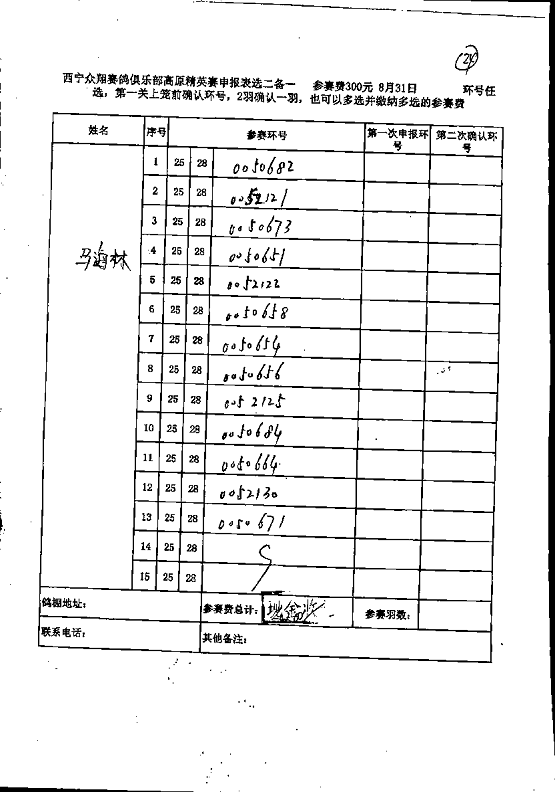 (24)
西宁众翔赛鸽俱乐部高原精英赛申报表选二备一 参赛费300元 8月31日 环号任
选,第一关上笼前确认环号,2羽确认一羽,也可以多选并缴纳多选的参赛费
姓名 序号 参赛环号 第一次申报环号 第二次确认环号
马海林
1 25 28 0050682
2 25 28 0052121
3 25 28 0050673
4 25 28 0050651
5 25 28 0052122
6 25 28 0050658
7 25 28 0050654
8 25 28 0050656
9 25 28 0052125
10 25 28 0050684
11 25 28 0050664
12 25 28 0052130
13 25 28 0050671
14 25 28
15 25 28
鸽棚地址: 参赛费总计: 参赛羽数:
联系电话: 其他备注: